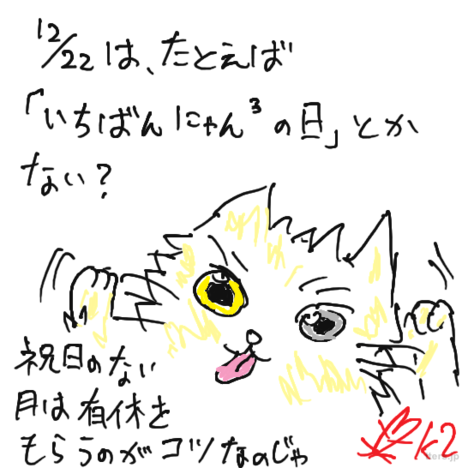 12/22は、たとえば
「いちばんにゃん³の日」とか
ない？
祝日のない
月は有休を
もらうのがコツなのじゃ
k2